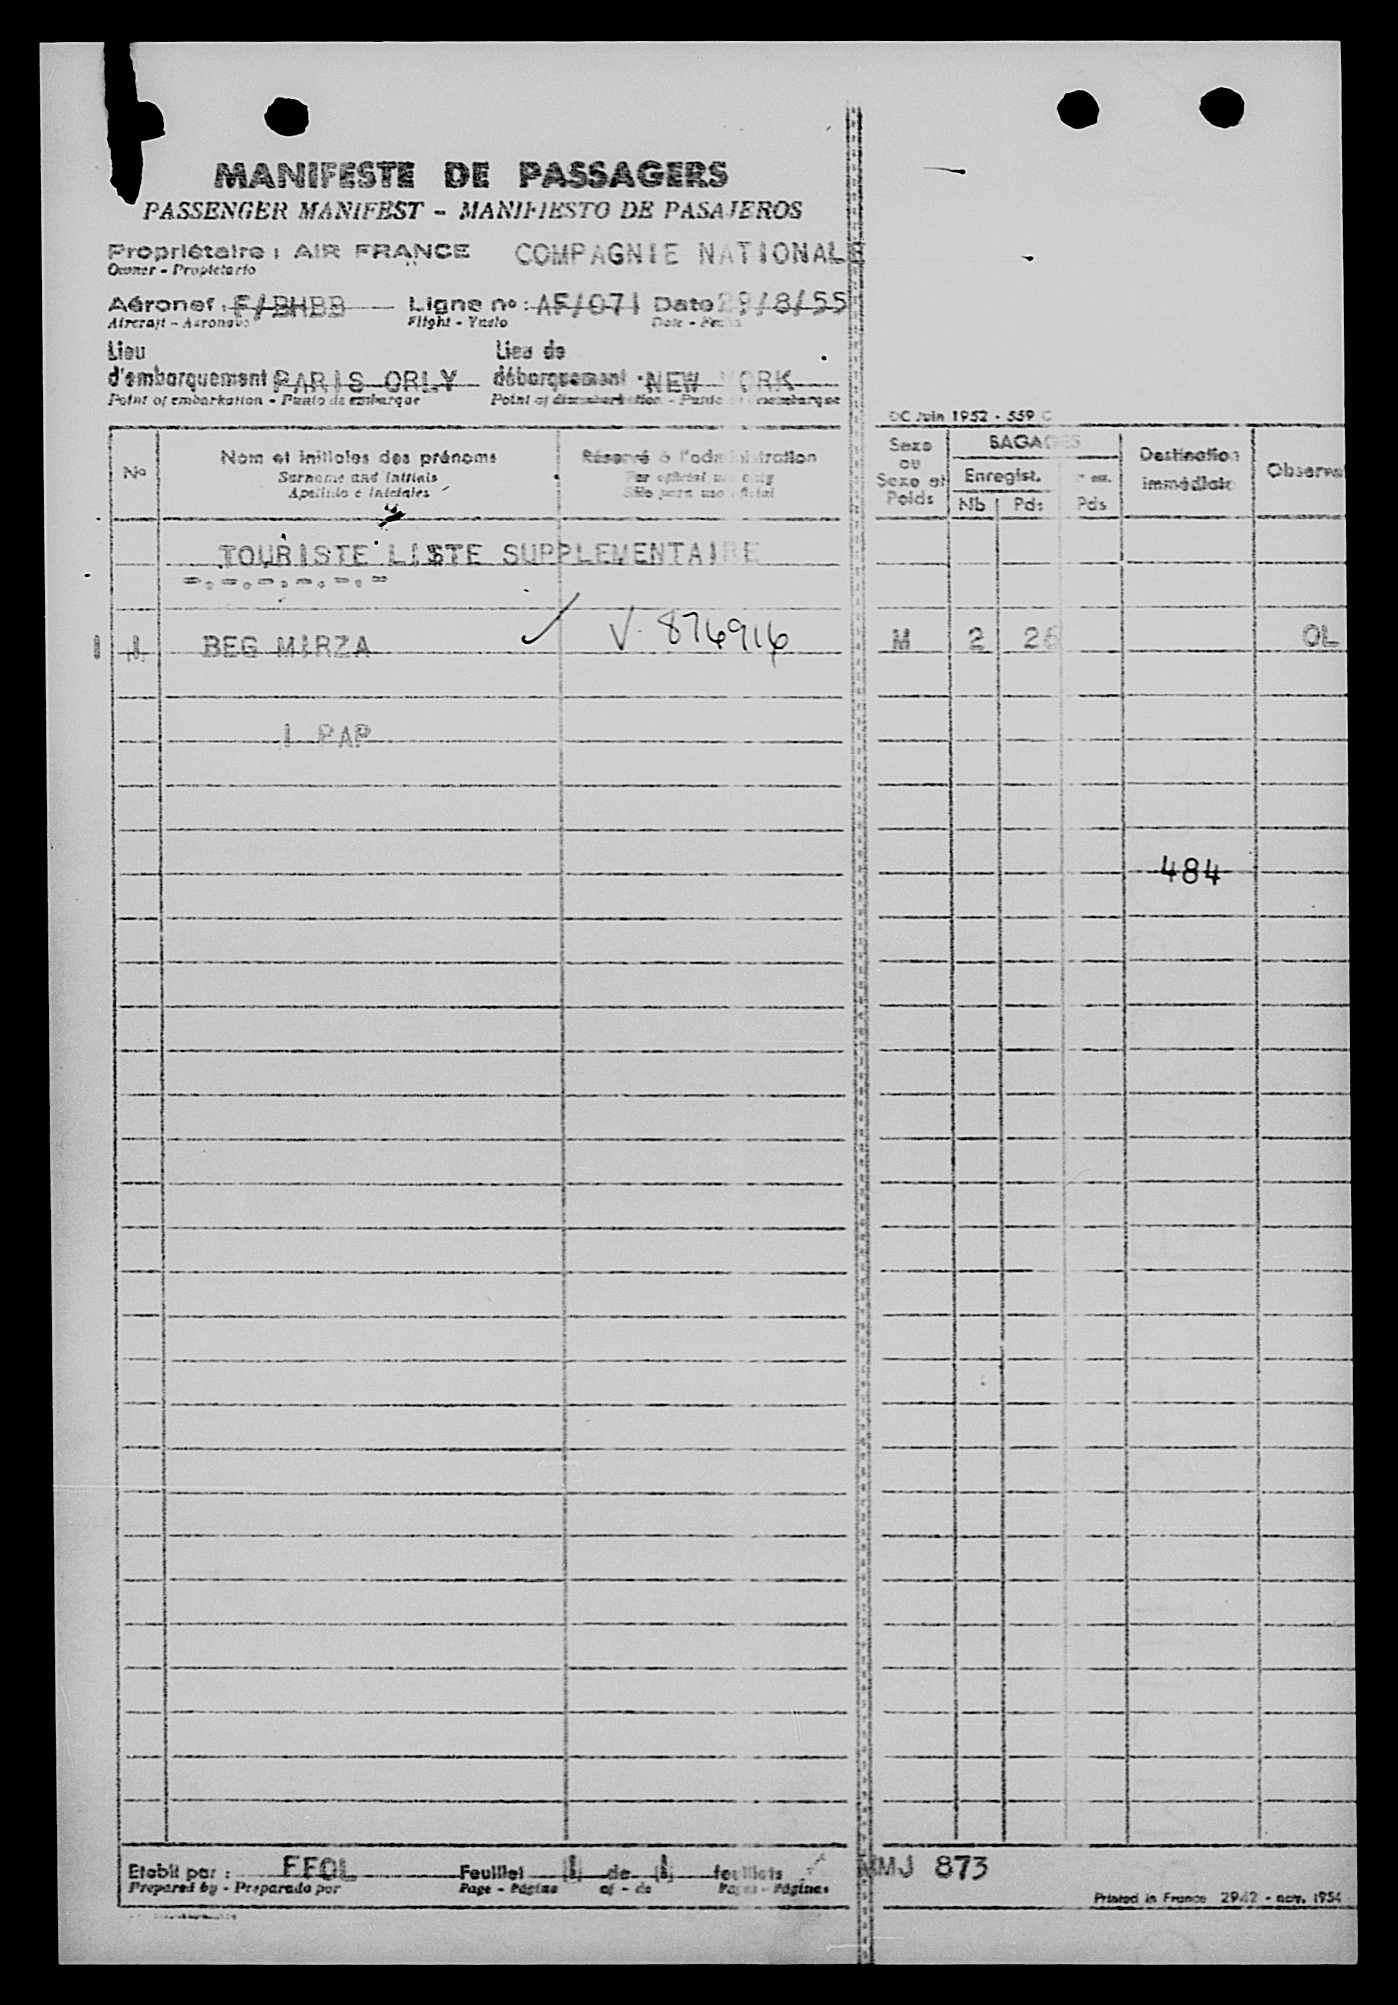 MANIFESTE DE PASSAGERS
PASSENGER MANIFEST - MANIFIESTO DE PASAJEROS
Propriétaire : AIR FRANCE COMPAGNIE NATIONALE
Owner - Propietario
Aéronef : F/BHBB Ligne nº : AF/071 Date 29/8/55
Aircraft - Aeronave Flight - Vuelo Date - Fecha
Lieu d'embarquement PARIS ORLY
Point of embarkation - Punto de embarque
Lieu de débarquement NEW YORK
Point of disembarkation - Punto de desembarque
DC Juin 1952 - 559 C
Nº
Nom et initiales des prénoms
Surname and initials
Apellido e iniciales
Réservé à l'administration
For official use only
Sólo para uso oficial
Sexe ou Sexe et Poids
BAGAGES
Enregist.
Nb Pds Pds
Destination immédiate
Observa
TOURISTE LISTE SUPPLEMENTAIRE
=.=.=.=.=.=
1 1 BEG MIRZA ✓ V. 876916 M 2 26 OL
1 PAP
484
Etabli par : FFOL Feuillet 1 de 1 feuillets
Prepared by - Preparado por Page - Página of - de Pages - Páginas
MMJ 873
Printed in France 2942 - nov. 1954